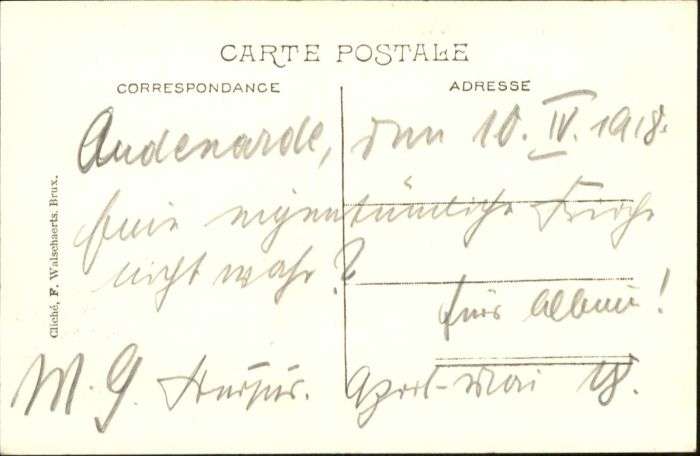 CARTE POSTALE
CORRESPONDANCE
ADRESSE
Audenarde, den 10. IV. 1918.
Eine eigentümliche Kirche
nicht wahr?
fürs Album!
M. G. April-Mai 18.
Cliché, F. Walschaerts, Brux.